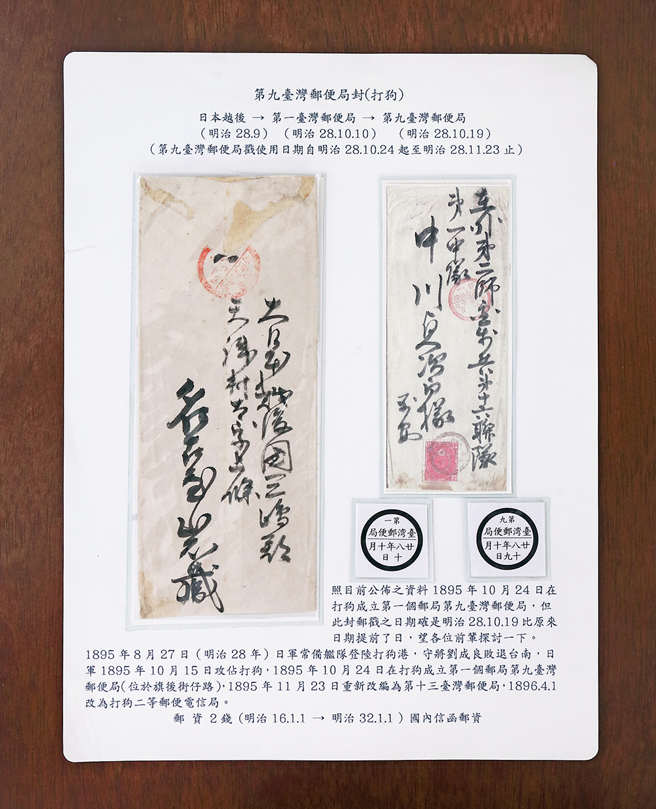 第九臺灣郵便局封(打狗)
日本越後 → 第一臺灣郵便局 → 第九臺灣郵便局
(明治 28.9) (明治 28.10.10) (明治 28.10.19)
(第九臺灣郵便局戳使用日期自明治 28.10.24 起至明治 28.11.23 止)
大日本越後國三嶋郡
村大字
第二師團歩兵第十六聯隊
第一中隊
中川貞治
第一
臺湾郵便局
廿八年十月
十日
第九
臺湾郵便局
廿八年十月
十九日
照目前公佈之資料 1895 年 10 月 24 日在
打狗成立第一個郵局第九臺灣郵便局，但
此封郵戳之日期確是明治 28.10.19 比原來
日期提前了日，望各位前輩探討一下。
1895 年 8 月 27 日 (明治 28 年) 日軍常備艦隊登陸打狗港，守將劉成良敗退台南，日
軍 1895 年 10 月 15 日攻佔打狗，1895 年 10 月 24 日在打狗成立第一個郵局第九臺灣
郵便局(位於旗後街仔路)，1895 年 11 月 23 日重新改編為第十三臺灣郵便局，1896.4.1
改為打狗二等郵便電信局。
郵 資 2 錢 (明治 16.1.1 → 明治 32.1.1) 國內信函郵資